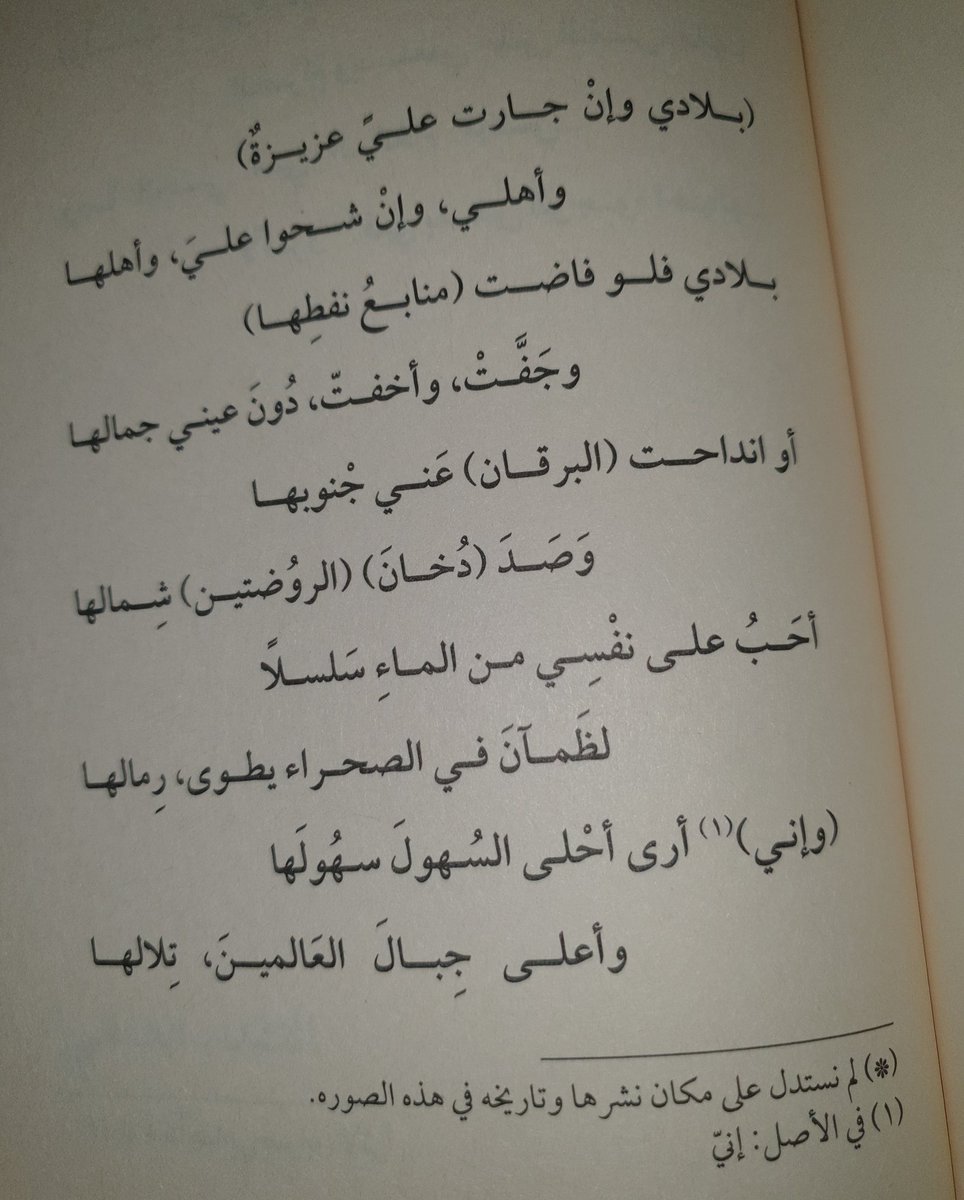 (بلادي وإنْ جارت عليَّ عزيزةٌ)
وأهلي، وإنْ شحوا عليَ، وأهلها
بلادي فلو فاضت (منابعُ نفطِها)
وجَفَّتْ، وأخفتّ، دُونَ عيني جمالها
أو انداحت (البرقان) عَني جْنوبها
وَصَدَ (دُخانَ) (الروُضتين) شِمالها
أحَبُ على نفْسِي من الماءِ سَلسلاً
لظَمآنَ في الصحراء يطوى، رِمالها
(وإني)(١) أرى أحْلى السُهولَ سهُولَها
وأعلى جِبالَ العَالمينَ، تِلالها
(*) لم نستدل على مكان نشرها وتاريخه في هذه الصوره.
(١) في الأصل: إنيّ